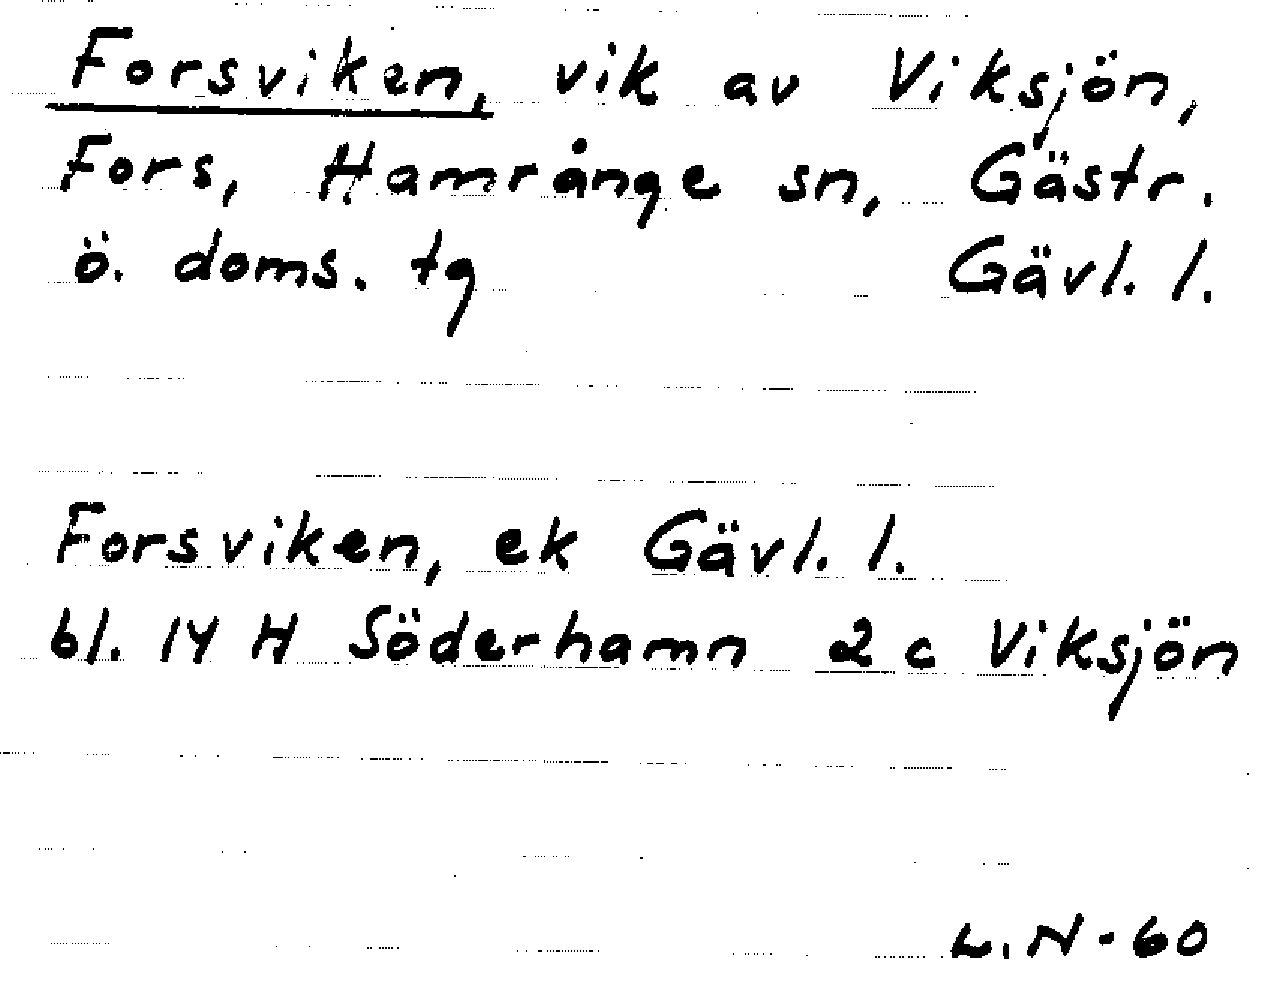 Forsviken, vik av Viksjön,
Fors, Hamrånge sn, Gästr.
ö. doms. tg Gävl. l.
Forsviken, ek Gävl. l.
bl. 14 H Söderhamn 2 c Viksjön
L.N-60